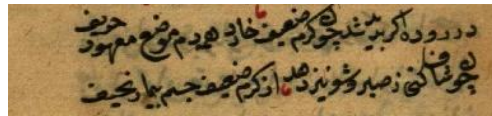 در روده اگر پدید شد چون کرم ضعیف خارد همه دم موضع معهود حریف
چو شافه کنی ز صبر و شونیز دهد از کرم ضعیف جسم بیمار نحیف